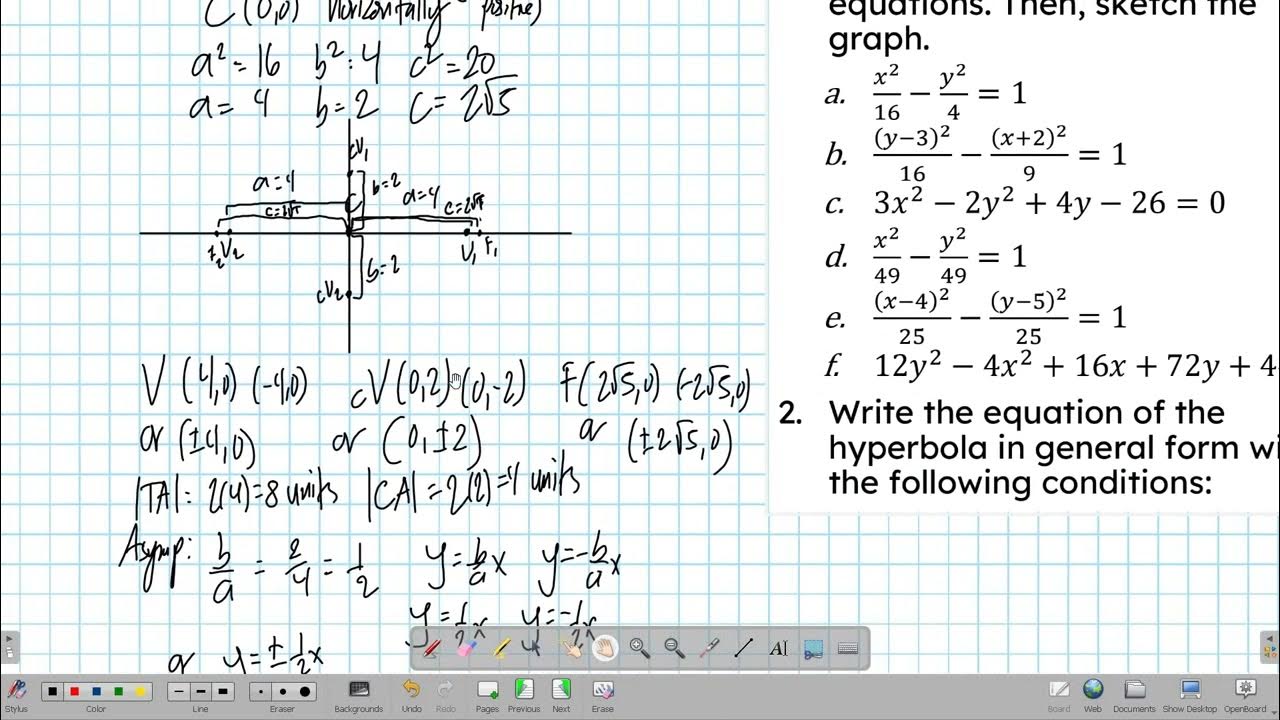 C (0,0) horizontally positive)
a² = 16 b² : 4 c² = 20
a = 4 b = 2 C = 2√5
cV₁
a = 4
b = 2
a = 4
C
c = 2√5
c = 2√5
F₂ V₂
V₁ F₁
b = 2
cV₂
V (4,0) (-4,0) cV (0,2) (0,-2) F (2√5,0) (-2√5,0)
or (±4,0) or (0,±2) or (±2√5,0)
|TA| = 2(4) = 8 units |CA| = 2(2) = 4 units
Asymp: b/a = 2/4 = 1/2 y = b/a x y = -b/a x
y = 1/2 x y = -1/2 x
or y = ± 1/2 x
equations. Then, sketch the
graph.
a. x²/16 − y²/4 = 1
b. (y−3)²/16 − (x+2)²/9 = 1
c. 3x² − 2y² + 4y − 26 = 0
d. x²/49 − y²/49 = 1
e. (x−4)²/25 − (y−5)²/25 = 1
f. 12y² − 4x² + 16x + 72y + 4
2. Write the equation of the
hyperbola in general form wi
the following conditions:
Stylus Color Line Eraser Backgrounds Undo Redo Pages Previous Next Erase Board Web Documents Show Desktop OpenBoard